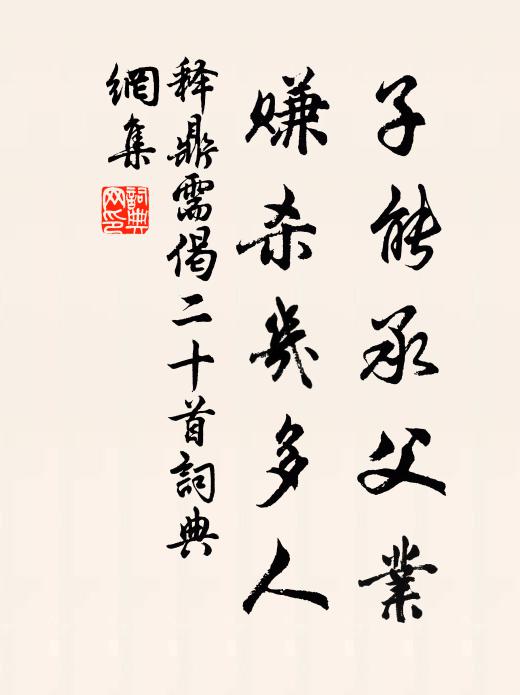 子能承父業
賺杀幾多人
释鼎需偈二十首詞典
網集
詞典
网印